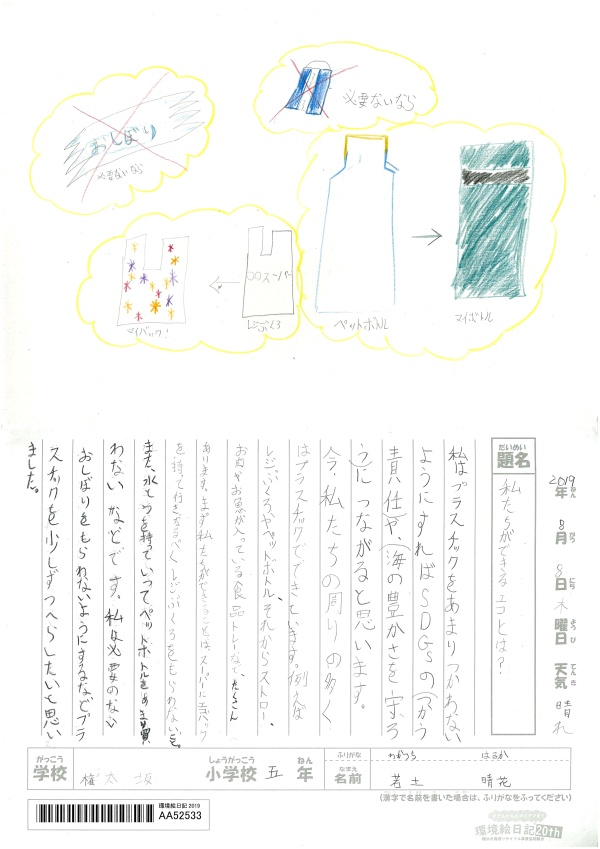 おしぼり
必要ないなら
必要ないなら
○○スーパー
マイバック!
レジぶくろ
ペットボトル
マイボトル
2019年 8月 8日 木曜日 天気 晴れ
ねん がつ にち ようび てんき
だいめい
題名
私たちができるエコとは?
私はプラスチックをあまりつかわない
ようにすればSDGSの(つかう
責任)や、(海の豊かさを守ろ
う)につながると思います。
今、私たちの周りの多く
はプラスチックでできています。例えば
レジぶくろやペットボトル、それからストロー、
お肉やお魚が入っている食品トレーなど、たくさん
あります。まず私たちができることは、スーパーにエコバック
を持って行きなるべくレジぶくろをもらわない。
また、水とうを持っていってペットボトルをあまり買
わないなどです。私は必要のない
おしぼりをもらわないようにするなどプラ
スチックを少しずつへらしたいと思い
ました。
がっこう
学校
権太坂
しょうがっこう
小学校
五
ねん
年
ふりがな
わかつち はるか
なまえ
名前
若土 晴花
(漢字で名前を書いた場合は、ふりがなをふってください)
環境絵日記 2019
AA52533
環境絵日記20th